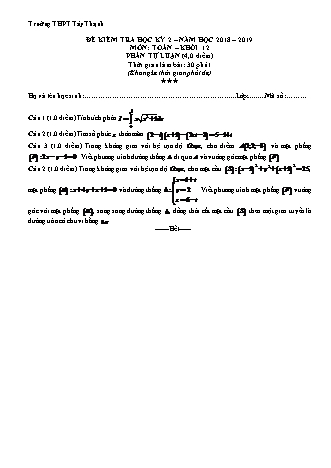 Trường THPT Tây Thạnh
ĐỀ KIỂM TRA HỌC KỲ 2 – NĂM HỌC 2018 – 2019
MÔN: TOÁN – KHỐI 12
PHẦN TỰ LUẬN (4,0 điểm)
Thời gian làm bài: 30 phút
(Không kể thời gian phát đề)
***
Họ và tên học sinh:.................................................Lớp:.........Mã số:.........
Câu 1 (1.0 điểm) Tính tích phân
Câu 2 (1.0 điểm) Tìm số phức z thỏa mãn
Câu 3 (1.0 điểm) Trong không gian với hệ tọa độ Oxyz, cho điểm và mặt phẳng
Viết phương trình đường thẳng Δ đi qua A và vuông góc mặt phẳng (P).
Câu 2 (1.0 điểm) Trong không gian với hệ tọa độ Oxyz, cho mặt cầu
mặt phẳng và đường thẳng Viết phương trình mặt phẳng (P) vuông
góc với mặt phẳng (α), song song đường thẳng Δ, đồng thời cắt mặt cầu (S) theo một giao tuyến là
đường tròn có chu vi bằng
-----Hết-----